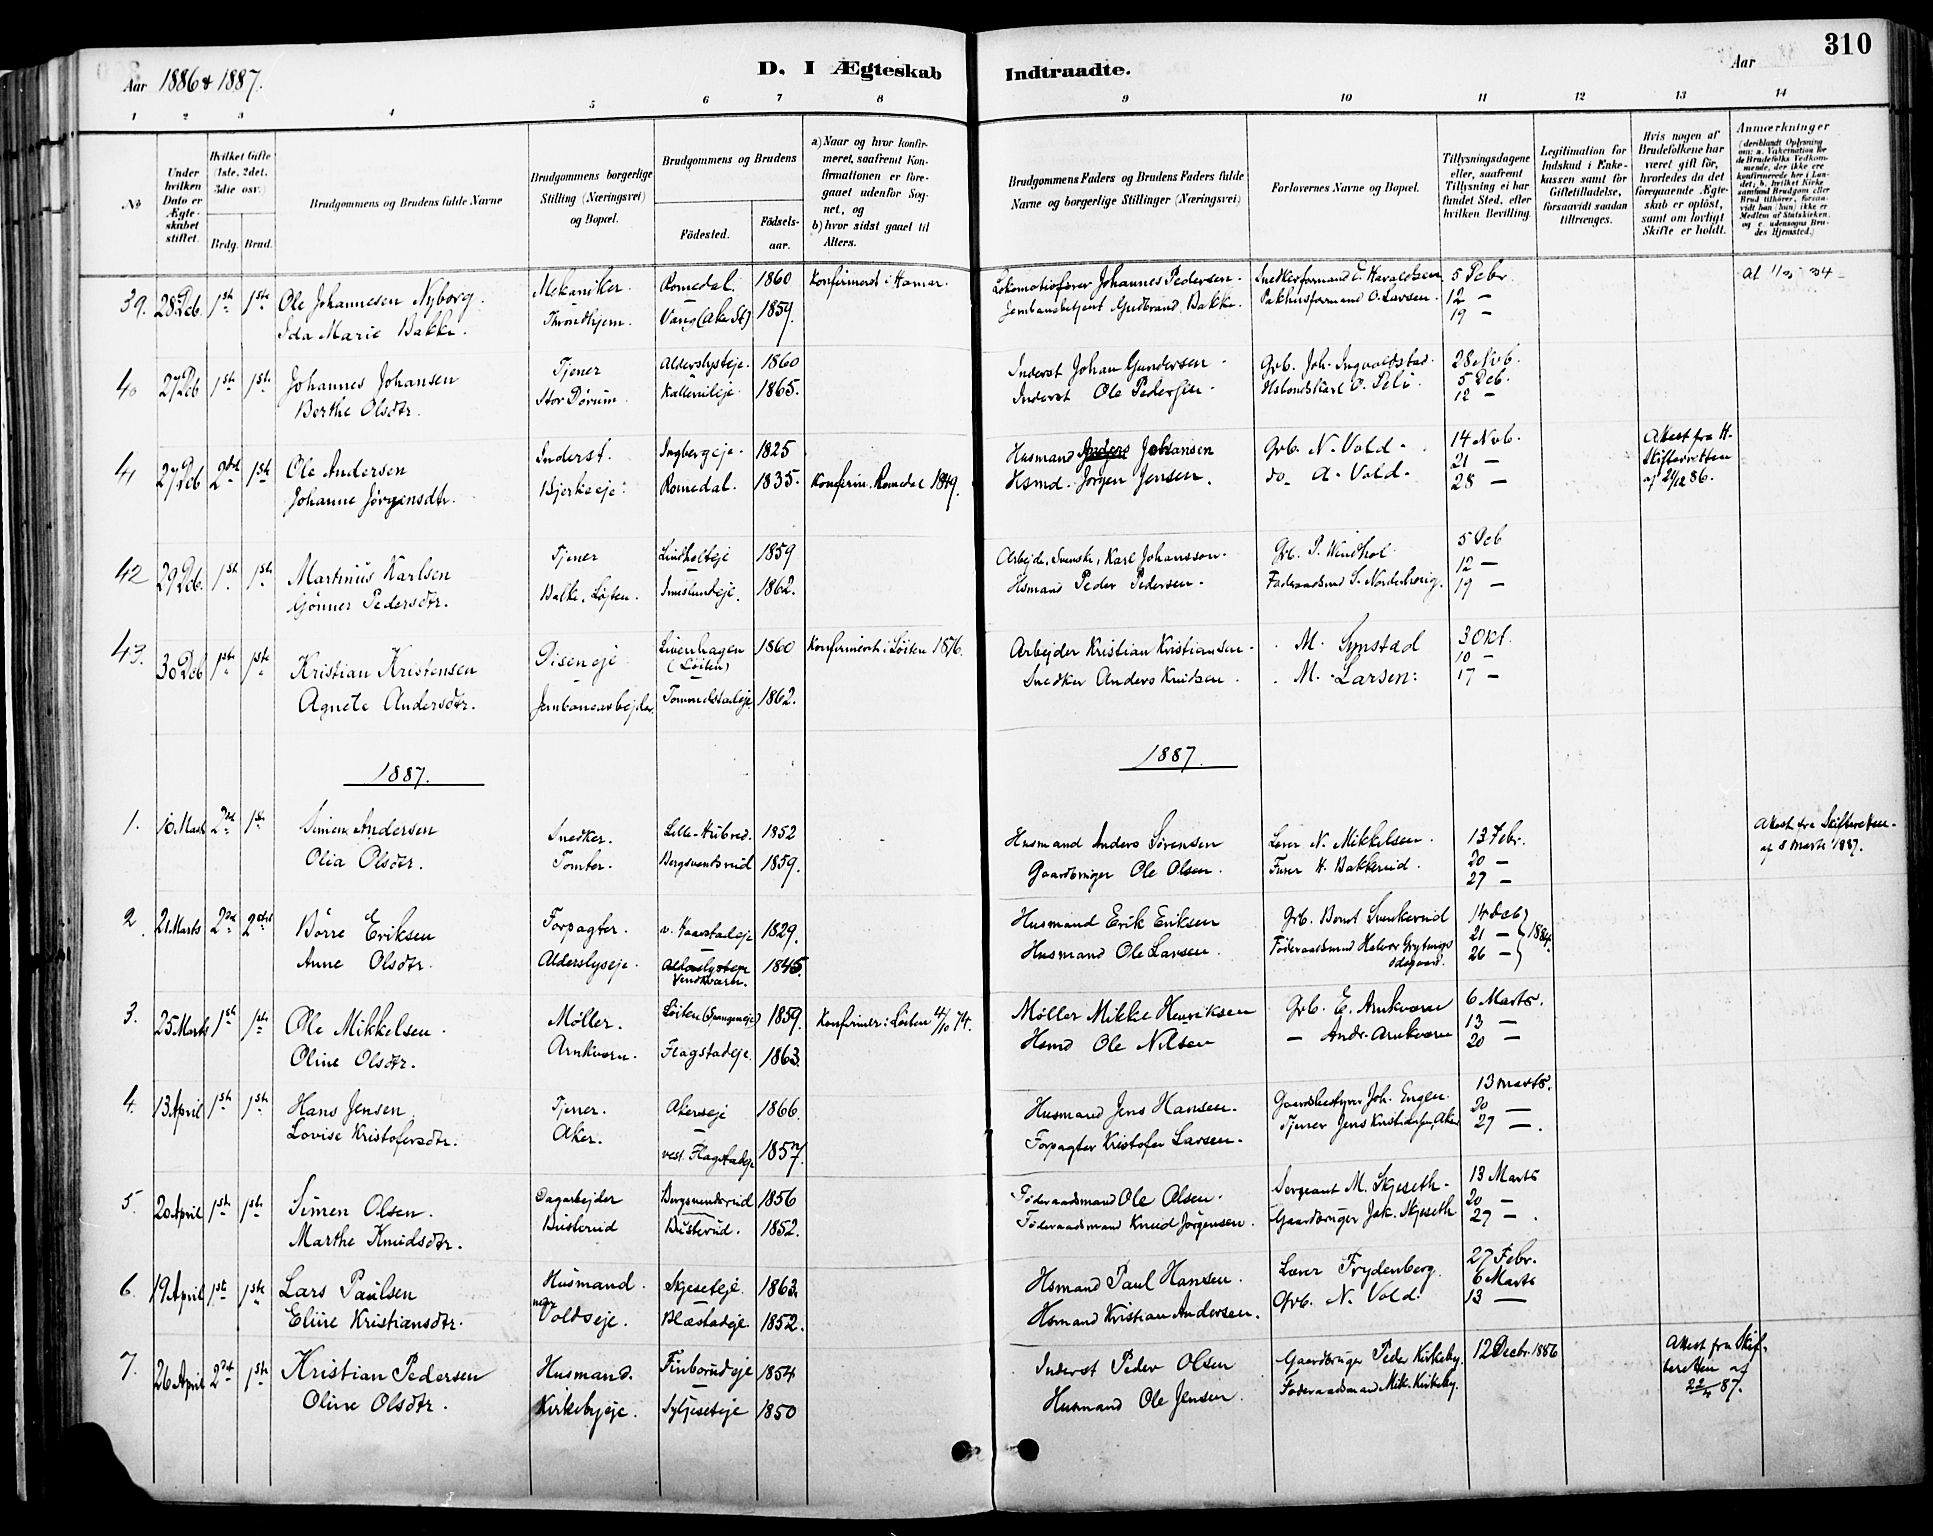 310
Aar 1886 & 1887.
D. I Ægteskab Indtraadte.
Aar
1 2 3 4 5 6 7 8 9 10 11 12 13 14
No
Under hvilken Dato er Ægteskabet stiftet.
Hvilket Gifte (1ste, 2det, 3die osv.)
Brdg. Brud.
Brudgommens og Brudens fulde Navne
Brudgommens borgerlige Stilling (Næringsvei) og Bopæl.
Brudgommens og Brudens
Fødested.
Fødselsaar.
a) Naar og hvor konfirmeret, saafremt Konfirmationen er foregaaet udenfor Sognet, og
b) hvor sidst gaaet til Alters.
Brudgommens Faders og Brudens Faders fulde Navne og borgerlige Stillinger (Næringsvei)
Forlovernes Navne og Bopæl.
Tillysningsdagene eller, saafremt Tillysning ei har fundet Sted, efter hvilken Bevilling.
Legitimation for Indskud i Enkekassen samt for Giftetilladelse, forsaavidt saadan tiltrænges.
Hvis nogen af Brudefolkene har været gift før, hvorledes da det foregaaende Ægteskab er opløst, samt om lovligt Skifte er holdt.
Anmærkninger
39. 28 Deb. 1st 1ste Ole Johannesen Nyborg. Mekaniker. Romedal. 1860 Konfirmerede i Hamar. Lokomotivfører Johannes Pedersen 5 Debr.
Ida Marie Bakke. Throndhjem. Vang 1859. Jernbanebetjent Gudbrand Bakke. Pakhusformand O. Larsen. 12 —
19 —
40 27 Deb 1st 1st Johannes Johansen Tjener Alderslysteje 1860 Inderst Johan Gundersen Grb. Joh. Ingvaldstad. 28 Nvb.
Berthe Olsdtr. Stor Dørum. 1865. Inderst Ole Pedersen 5 Deb.
12 —
41 27 Deb 2det 1st Ole Andersen Inderst. Ingbergeje 1825 Husmand Johansen Grb. N. Vold 14 Nvb.
Johanne Jørgensdtr. Bjerkeeje. Romedal. 1835. Konfirm. Romedal 1849. Hsmd. Jørgen Jensen. do A. Vold 21 —
28 —
Attest fra H. Skifteretten af 21/12 86.
42 29 Deb. 1st 1st Martinus Karlsen Tjener Lindholteje 1859 Arbejder, Svensk, Karl Johansson 5 Deb
Gønner Pedersdtr. Balke, Løjten. Imeslundeje. 1862. Hsmand Peder Pedersen. 12 —
19 —
43. 30 Deb 1ste 1ste Kristian Kristensen Diseneje (Løiten) 1860 Konfirmeret i Løiten 1876. Arbejder Kristian Kristiansen M. Synstad 3 Okt.
Agnete Andersdtr. Jernbanearbejder. Tommelstadeje 1862. Snedker Anders Knudsen. M. Larsen. 10 —
17 —
1887. 1887.
1. 10 Marts 2det 1ste Simen Andersen Snedker. Lille-Hubred. 1852 Husmand Anders Sørensen Lærer N. Mikkelsen. 13 Febr.
Olia Olsdtr. Tomter. Bergsvendsrud 1859. Gaardbruger Ole Olsen. Furer H. Bakkerud. 20 —
27 —
Attest fra Skifteretten af 8 Marts 1887.
2. 21 Marts 2det 2det Børre Eriksen Forpagter. 1829. Husmand Erik Eriksen Grb. Bernt Svenkerud 14 Deb
Anne Olsdtr. Alderslyseje. 1845. Husmand Ole Larsen. Føderaadsmand Halvor 21 — 1884.
26 —
3. 25 Marts 1st 1ste Ole Mikkelsen. Møller. Løiten (Spangeneje) 1859. Konfirmer. i Løiten 4/10 74. Møller Mikkel Henriksen Grb. E. Arnkværn 6 Marts.
Oline Olsdtr. Arnkværn. Flagstadeje. 1863. Hsmd Ole Nilsen — Andr. Arnkværn 13 —
20 —
4. 13 April 1st 1st Hans Jensen Tjener. Akerseje 1866. Husmand Jens Hansen. Gaardbestyrer Joh. Engen. 13 Marts.
Lovise Kristofersdtr. Aker. vest. Flagstadeje 1857. Forpagter Kristofer Larsen. Tjener Jens Kristiansen, Aker 20 —
27 —.
5. 20 April 1st 1st Simen Olsen. Dagarbejder Bergsvendsrud 1856 Føderaadsmand Ole Olsen. Sergeant M. Skjeseth. 13 Marts
Marthe Knudsdtr. Busterud Busterud. 1852. Føderaadsmand Knud Jørgensen. Gaardbruger Jak. Skjeseth 20 —
27 —.
6. 19 April 1st 1ste Lars Paulsen Husmand. Skjeseteje. 1863. Hsmand Paul Hansen. Lærer Frydenberg. 27 Febr.
Eline Kristiansdtr. Voldseje. Blæstadeje. 1852. Hsmand Kristian Andersen. Grb. N. Vold. 6 Marts
13 —
7. 26 April 2det 1ste Kristian Pedersen Husmand. Finborudeje 1854 Inderst Peder Olsen Gaardbruger Peder Kirkeby. 12 Decbr. 1886
Oline Olsdtr. Kirkebyeje. Syljeseteje 1850 Husmand Ole Jensen. Føderaadsmand Mik. Kirkeby.
Attest fra Skifteretten af 22/4 87.